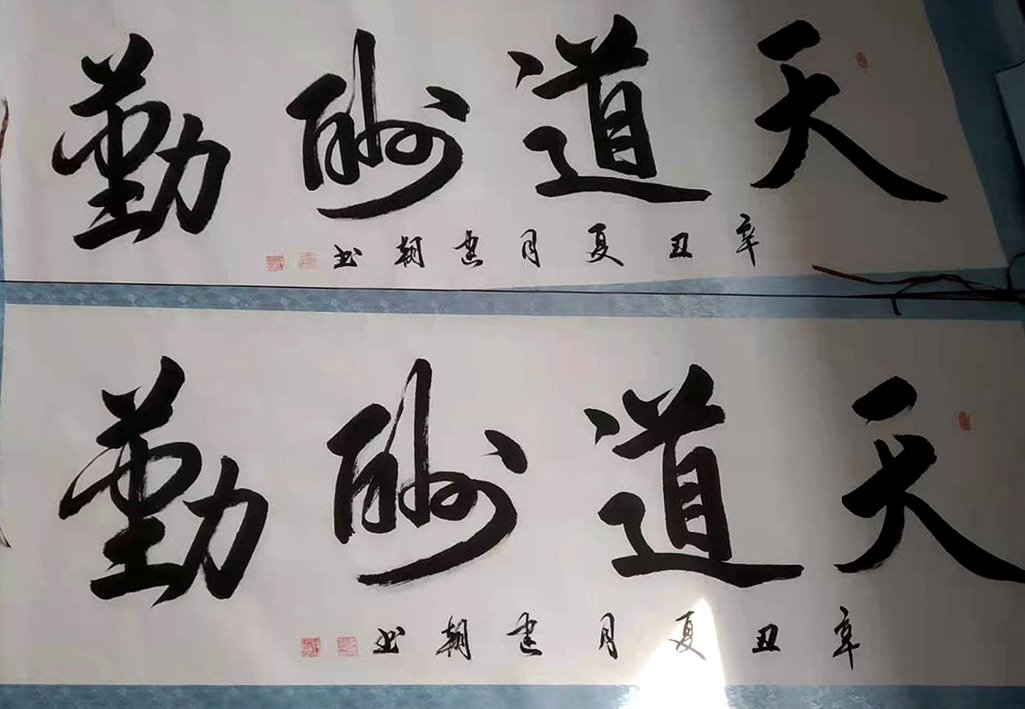 天道酬勤
辛丑夏月建朝书
天道酬勤
辛丑夏月建朝书